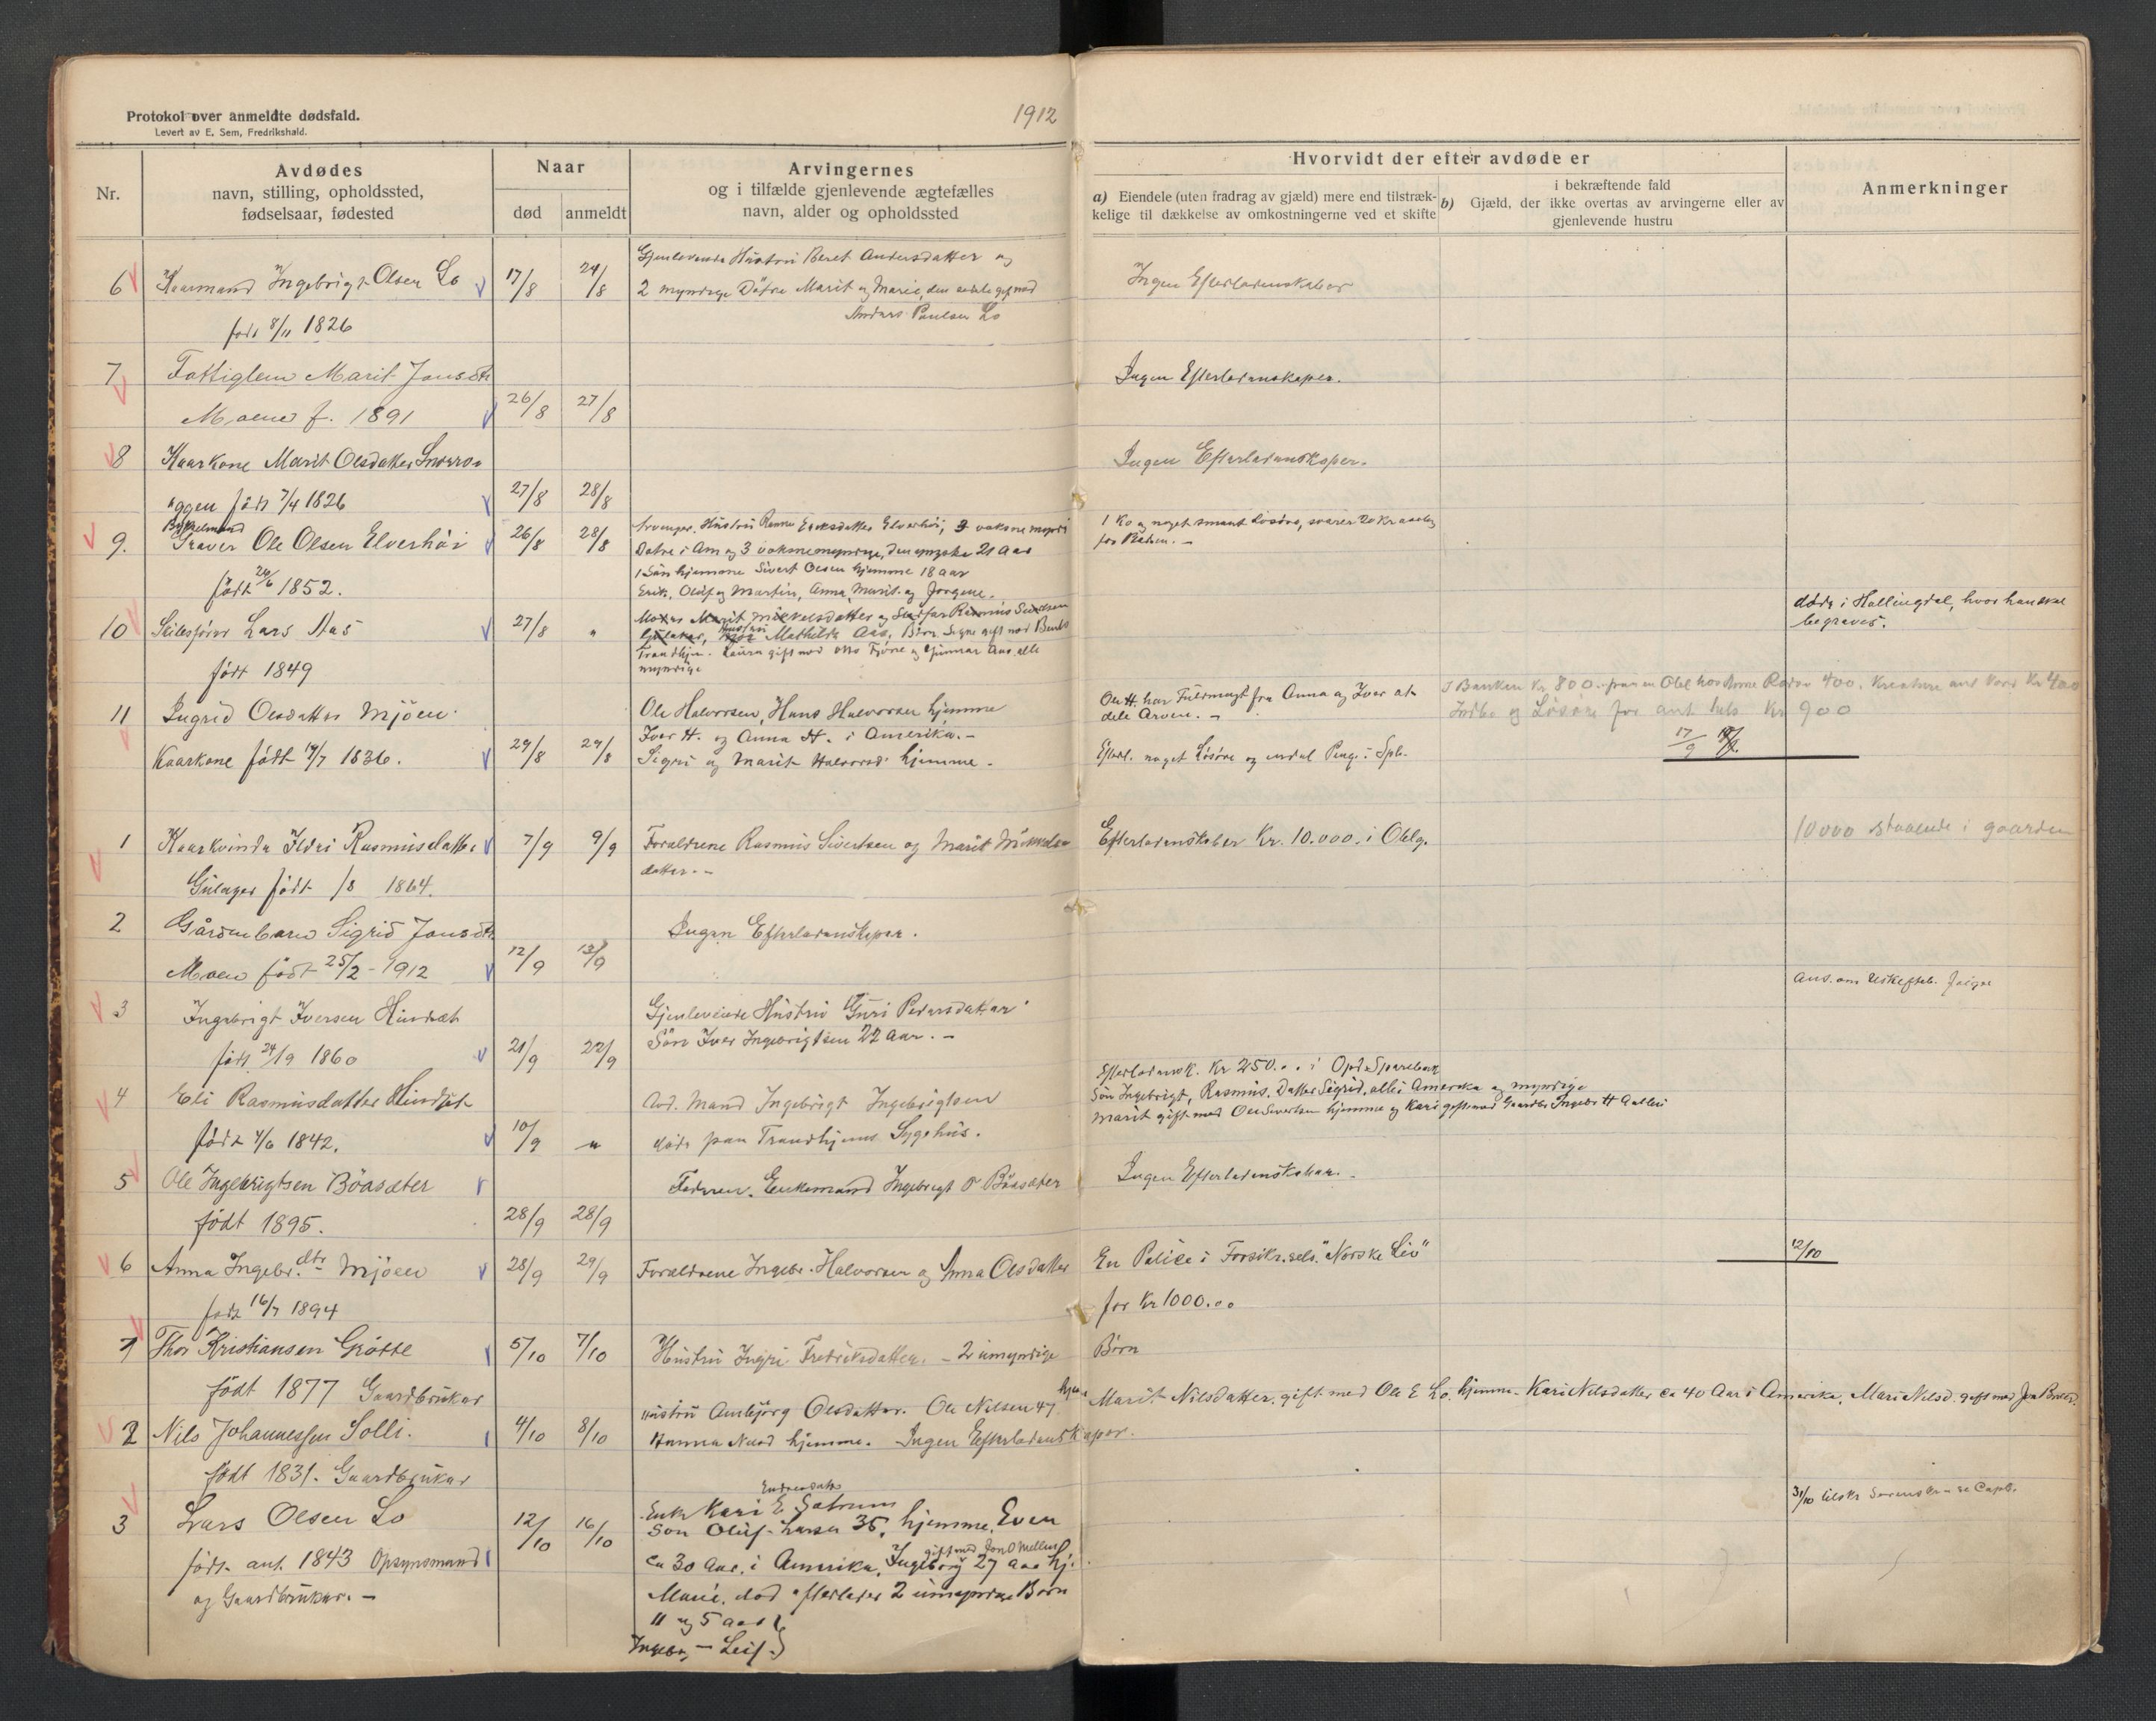 Protokol over anmeldte dødsfald.
Levert av E. Sem, Fredrikshald.
1912
Nr.
Avdødes
navn, stilling, opholdssted,
fødselsaar, fødested
Naar
død
anmeldt
Arvingernes
og i tilfælde gjenlevende ægtefælles
navn, alder og opholdssted
Hvorvidt der efter avdøde er
a) Eiendele (uten fradrag av gjæld) mere end tilstræk-
kelige til dækkelse av omkostningerne ved et skifte
i bekræftende fald
b) Gjæld, der ikke overtas av arvingerne eller av
gjenlevende hustru
Anmerkninger
6 Kaarmand Ingebrigt Olsen Lo 17/8 24/8
født 8/11 1826
Gjenlevende Hustru Beret Andersdatter og
2 myndige Døtre Marit og Marie, den sidste gift med
Anders Paulsen Lo
Ingen Efterladenskaber
7 Fattiglem Marit Jonsdtr
Moene f. 1891 26/8 27/8
Ingen Efterladenskaper.
8 Kaarkone Marit Olsdatter
født 7/4 1826 27/8 28/8
Ingen Efterladenskaper.
9. Graver Ole Olsen Elverhøi 26/8 28/8
født 26/6 1852.
Hustru Ranne Eriksdatter Elverhøi, 3 voksne
Døtre i Am og 3 voksne myndige, den yngste 21 Aar
1 Søn hjemme Sivert Olsen hjemme 18 aar
Erik, Oluf og Martin, Anna, Marit og Jørgine.
1 Ko og noget smaat Løsøre, svarer 20 Kr
10 Lars Aas 27/8 "
født 1849
Moder Marit Mikkelsdatter og Rasmus Sivertsen
Gulaker, Hustru Mathilde Aas, Børn Signe gift med
Trondhjem. Laura gift med Otto Fjøne og Gunnar Aas alle
myndige
døde i Hallingdal, hvor han skal
begraves.
11 Ingrid Olsdatter Mjøen
Kaarkone født 14/7 1836. 29/8 29/8
Ole Halvorsen, Hans Halvorsen hjemme
Iver H. og Anna H. i Amerika. -
Sigri og Marit Halvorsd. hjemme.
Ole H. har Fuldmagt fra Anna og Iver at
dele Arven. -
Efterl. noget Løsøre og endel Penge i Spb.
I Banken Kr 800. 400. Kreature ant. Værd Kr 400
Indbo og Løsøre for ant. Kr 900
17/9
1 Kaarkvinde Ildri Rasmusdatter 7/9 9/9
Gulager født /8 1864.
Forældrene Rasmus Sivertsen og Marit Mikkels-
datter. -
Efterladenskaber Kr. 10.000. i Oblg.
10000 staaende i gaarden
2 Gårdmbarn Sigrid Jonsdtr
Moen født 25/2 - 1912 12/9 13/9
Ingen Efterladenskaper.
3 Ingebrigt Iversen Hindset
født 24/9 1860 21/9 22/9
Gjenlevende Hustru Guri Pedersdatter
Søn Iver Ingebrigtsen 22 aar. -
Ans. om Uskifteb.
4 Eli Rasmusdatter Hindset
født 4/6 1842. 10/9 "
Avd. Mand Ingebrigt Ingebrigtsen
døde paa Trondhjems Sygehus.
Efterladensk. Kr 250.. i Opd. Sparebank
Søn Ingebrigt, Rasmus, Datter Sigrid, alle i Amerika og myndige
Marit gift med Ole Sivertsen hjemme og Kari gift med Gaardbr. Ingebr. H
5 Ole Ingebrigtsen Bøasæter
født 1895. 28/9 28/9
Faderen. Enkemand Ingebrigt O Bøasæter
Ingen Efterladenskaber.
6 Anna Ingebr. dtr Mjøen 28/9 29/9
født 16/7 1894
Forældrene Ingebr. Halvorsen og Anna Olsdatter
En Police i Forsikr.sels. "Norske Liv"
for Kr 1000.00
12/10
1 Thor Kristiansen Grøtte 5/10 7/10
født 1877 Gaardbruker
Hustru Ingri Fredriksdatter. - 2 umyndige Børn
2 Nils Johannessen Solli. 4/10 8/10
født 1831. Gaardbruker
Hustru Ambjørg Olsdatter. Ole Nilsen 47 hjem
Marit Nilsdatter, gift med Ole E Lo. hjemme - Kari Nilsdatter ca 40 Aar i Amerika, Mari Nilsd. gift med Jon
Hanna Nilsd hjemme. Ingen Efterladenskaper.
3 Lars Olsen Lo 12/10 16/10
født ant. 1843 Opsynsmand
og Gaardbruker. -
Enke Kari E
Søn Oluf Larsen 35, hjemme, Even
ca 30 Aar. i Amerika, Ingeborg 27 aar hj.
gift med Jon O Mellem
Marie, død efterlader 2 umyndige Børn
11 og 5 aar
Ingebr - Leif.
31/10